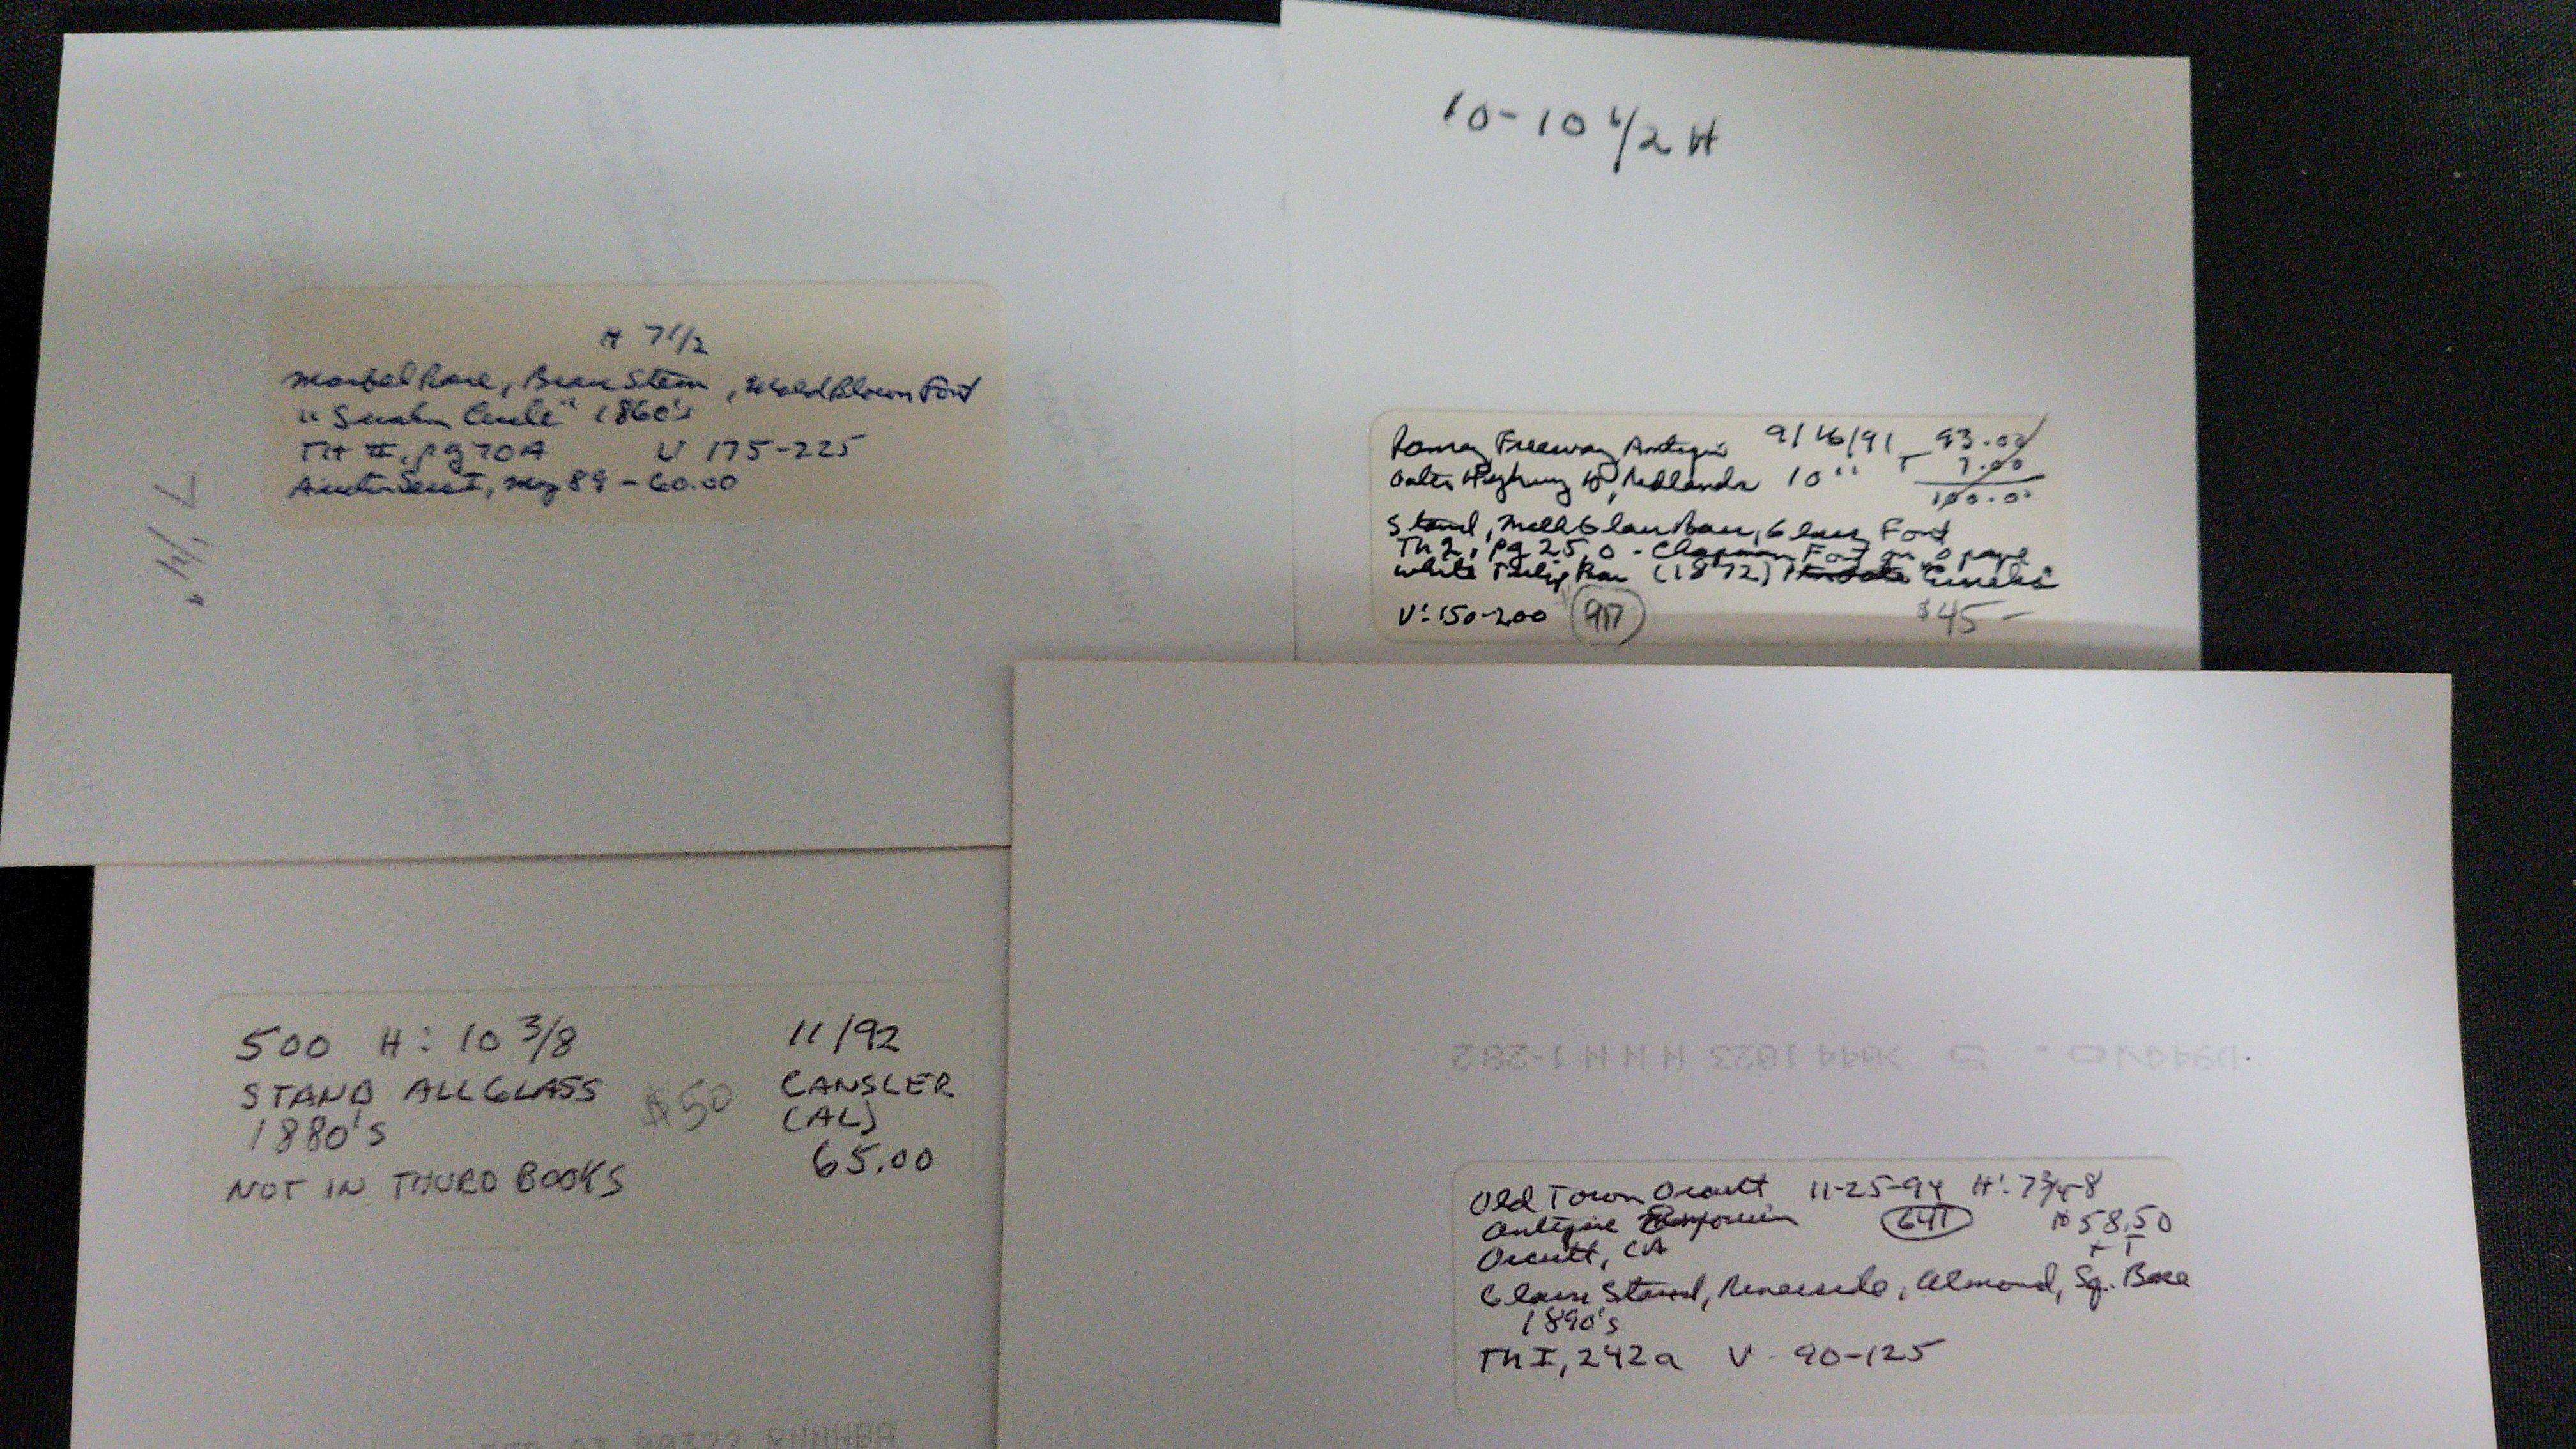 H 7 1/2
Marbel Base, Brass Stem, Mold Blown Font
1860's
TH II, pg 70A V 175-225
May 89 - 60.00
7 1/4"
10-10 1/2 H
Freeway Antique 9/16/91 93.00
Outer Highway 10, Redlands 10" T 7.00
100.00
Stand, Milk Glass Base, Glass Font
Th 2, pg 25, o - Chapman Font on o page
White Tulip Base (1872) "Eureka"
V: 150-200 917 $45-
500 H: 10 3/8 11/92
STAND ALL GLASS $50 CANSLER
1880's (AL)
65.00
NOT IN THURO BOOKS
Old Town Orcutt 11-25-94 H: 7 3/4-8
Antique Emporium 641 58.50
Orcutt, CA + T
Glass Stand, Riverside, Almond, Sq. Base
1890's
Th I, 242a V - 90-125